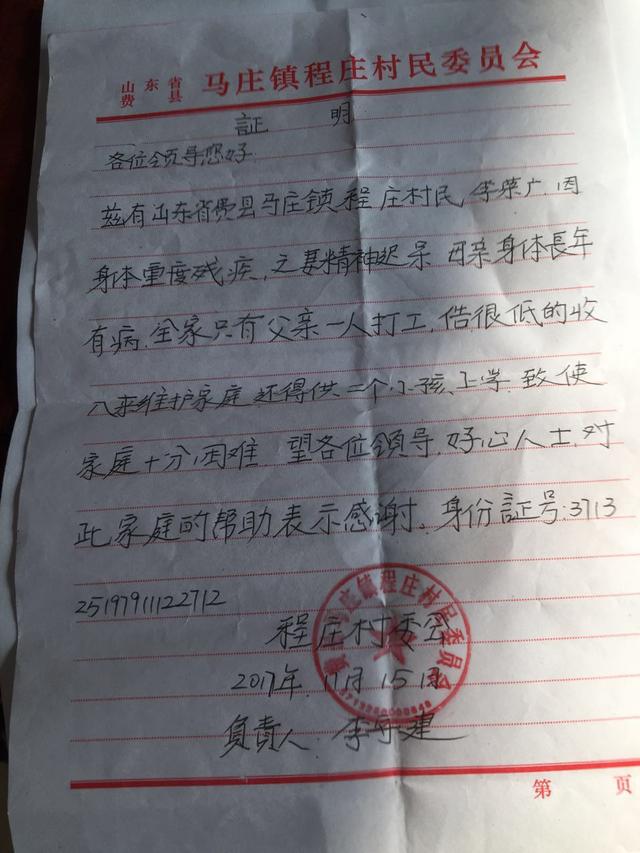 山东省费县 马庄镇程庄村民委员会
証 明
各位领导您好
兹有山东省费县马庄镇程庄村民,李荣广.因
身体重度残疾,之妻精神迟呆 母亲身体長年
有病.全家只有父亲一人打工,借很低的收
入来维护家庭 还得供.二个小孩.上学.致使
家庭十分困难 望各位领导.好心人士.对
此家庭的帮助表示感谢。身份証号:3713
25197911122712
程庄村委会
2017年.11月15日
負責人 李守建
费县马庄镇程庄村民委员会
第 页